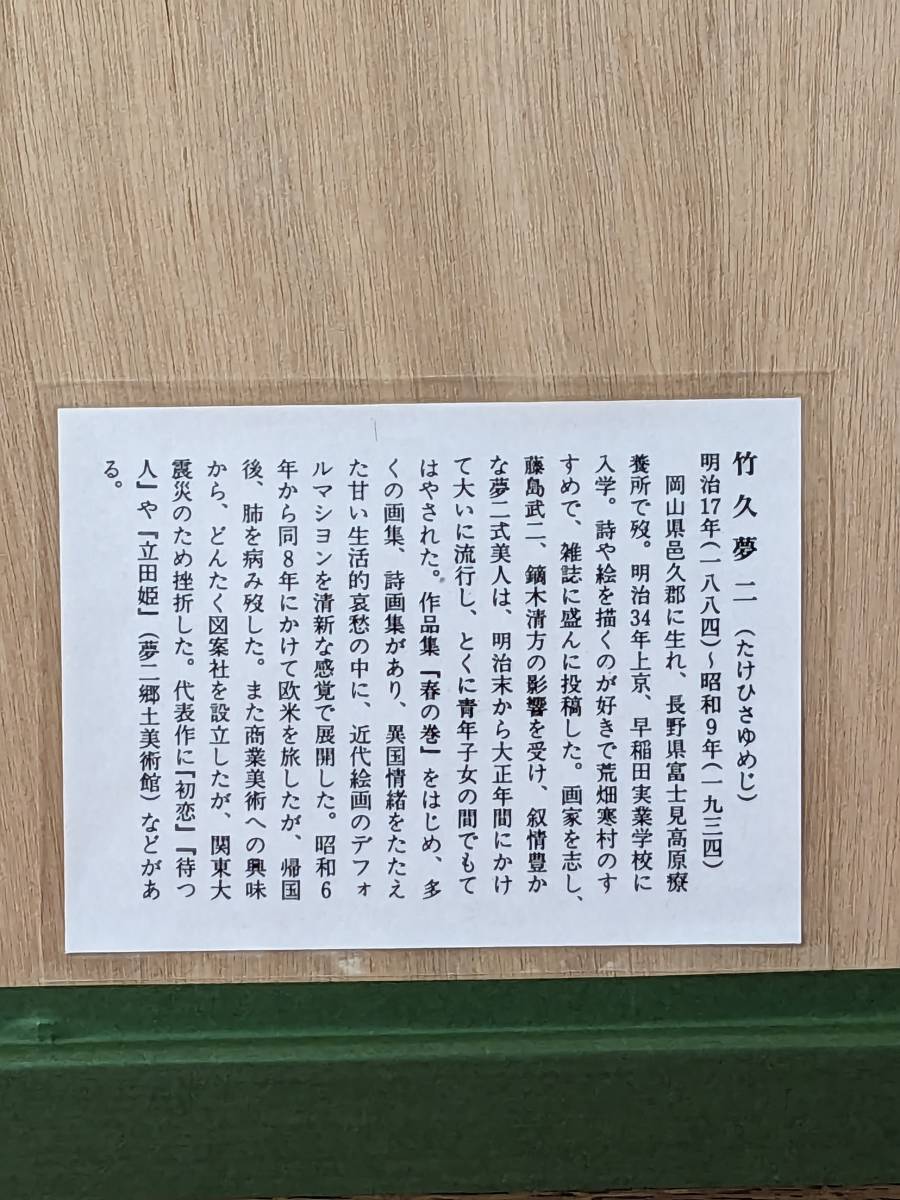 竹久夢二（たけひさゆめじ）
明治17年（一八八四）～昭和9年（一九三四）
岡山県邑久郡に生れ、長野県富士見高原療
養所で歿。明治34年上京、早稲田実業学校に
入学。詩や絵を描くのが好きで荒畑寒村のす
すめで、雑誌に盛んに投稿した。画家を志し、
藤島武二、鏑木清方の影響を受け、叙情豊か
な夢二式美人は、明治末から大正年間にかけ
て大いに流行し、とくに青年子女の間でもて
はやされた。作品集『春の巻』をはじめ、多
くの画集、詩画集があり、異国情緒をたたえ
た甘い生活的哀愁の中に、近代絵画のデフォ
ルマシヨンを清新な感覚で展開した。昭和6
年から同8年にかけて欧米を旅したが、帰国
後、肺を病み歿した。また商業美術への興味
から、どんたく図案社を設立したが、関東大
震災のため挫折した。代表作に『初恋』『待つ
人』や『立田姫』（夢二郷土美術館）などがあ
る。